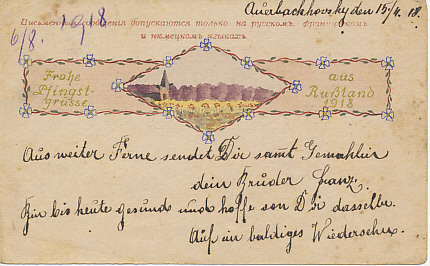 Auerbachhovsky den 15/4. 18.
Письменныя сообщения допускаются только на русскомъ, французскомъ
и нѣмецкомъ языкахъ.
6/8. 1918
Frohe
Pfingst-
grüsse
aus
Rußland
1918
Aus weiter Ferne sendet Dir samt Gemahlin
dein Bruder Franz.
Bin bis heute gesund und hoffe von Dir dasselbe.
Auf ein baldiges Wiedersehn.